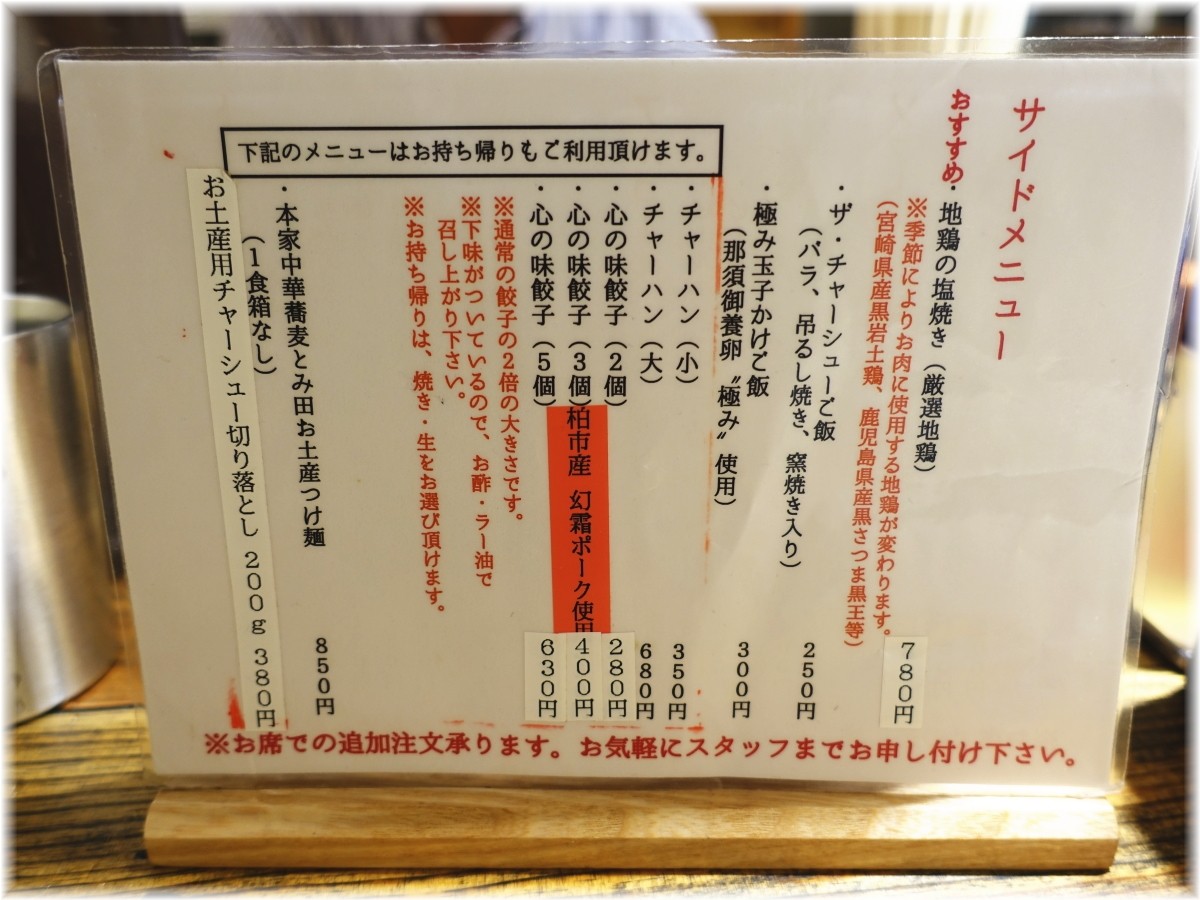 サイドメニュー
おすすめ・地鶏の塩焼き（厳選地鶏） 780円
※季節によりお肉に使用する地鶏が変わります。
（宮崎県産黒岩土鶏、鹿児島県産黒さつま黒王等）
・ザ・チャーシューご飯 250円
（バラ、吊るし焼き、窯焼き入り）
・極み玉子かけご飯 300円
（那須御養卵〝極み〟使用）
下記のメニューはお持ち帰りもご利用頂けます。
・チャーハン（小） 350円
・チャーハン（大） 680円
・心の味餃子（2個） 280円
・心の味餃子（3個） 400円
柏市産 幻霜ポーク使用
・心の味餃子（5個） 630円
※通常の餃子の2倍の大きさです。
※下味がついているので、お酢・ラー油で
召し上がり下さい。
※お持ち帰りは、焼き・生をお選び頂けます。
・本家中華蕎麦とみ田お土産つけ麺 850円
（1食箱なし）
お土産用チャーシュー切り落とし 200g 380円
※お席での追加注文承ります。お気軽にスタッフまでお申し付け下さい。